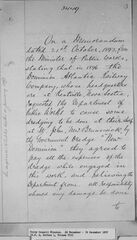 On a Memorandum
dated 21st October, 1897, from
the Minister of Public Works,
stating that in 1896 the
Dominion Atlantic Railway
Company, whose head quarters
is Kentville Nova Scotia,
requested the Department of
Public Works to cause some
dredging to be done at their wharf
at St John, New Brunswick, by
the Government Dredge "New
Dominion", they agreed to
pay all the expenses of the
dredge while engaged in
this work and relieving the
Department from all responsibility
should any damage be done